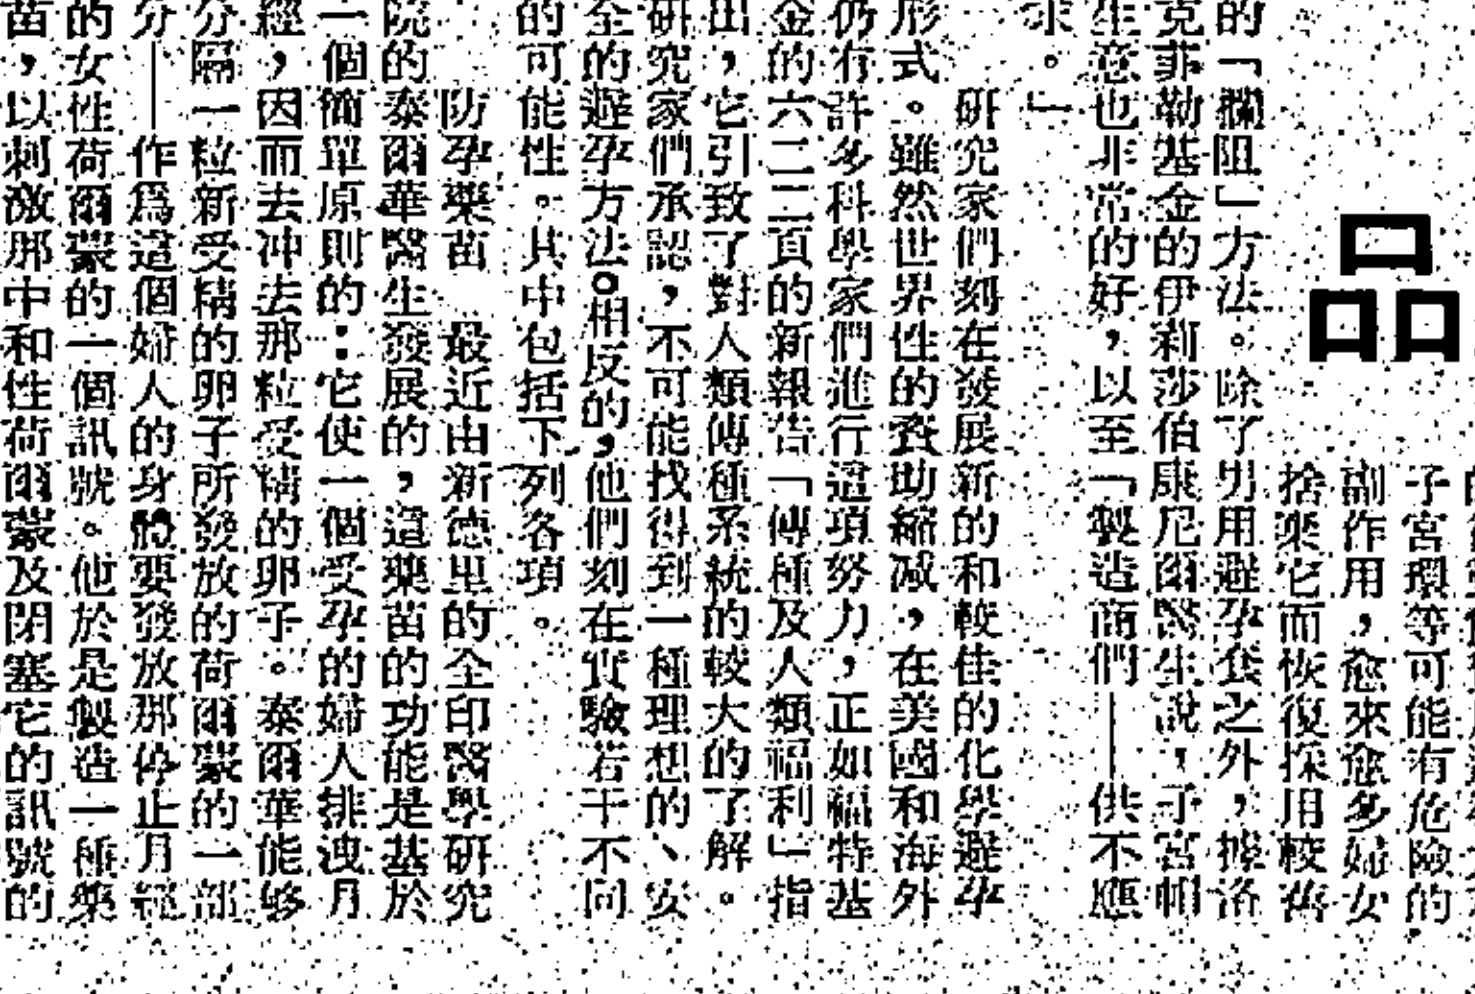 品
子宮環等可能有危險的
副作用，愈來愈多婦女
捨藥它而恢復採用較舊
的「攔阻」方法。除了男用避孕套之外，據洛
克菲勒基金的伊莉莎伯康尼爾醫生說，子宮帽
生意也非常的好，以至「製造商們——供不應
求。」
研究家們刻在發展新的和較佳的化學避孕
形式。雖然世界性的資助縮減，在美國和海外
仍有許多科學家們進行這項努力，正如福特基
金的六二二頁的新報告「傳種及人類福利」指
出，它引致了對人類傳種系統的較大的了解。
研究家們承認，不可能找得到一種理想的、安
全的避孕方法。相反的，他們刻在實驗若干不同
的可能性。其中包括下列各項。
防孕藥苗 最近由新德里的全印醫學研究
院的泰爾華醫生發展的，這藥苗的功能是基於
一個簡單原則的：它使一個受孕的婦人排洩月
經，因而去冲去那粒受精的卵子。泰爾華能够
分隔一粒新受精的卵子所發放的荷爾蒙的一部
分——作爲這個婦人的身體要發放那停止月經
的女性荷爾蒙的一個訊號。他於是製造一種藥
苗，以刺激那中和性荷爾蒙及閉塞它的訊號的